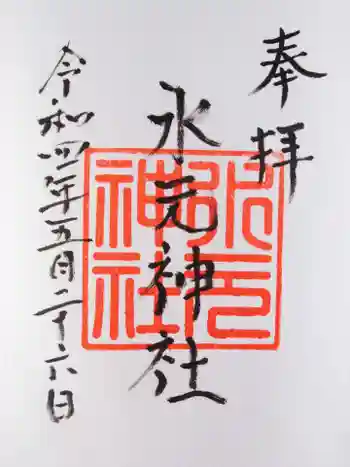 奉拝
水元神社
水元神社
令和四年五月二十六日